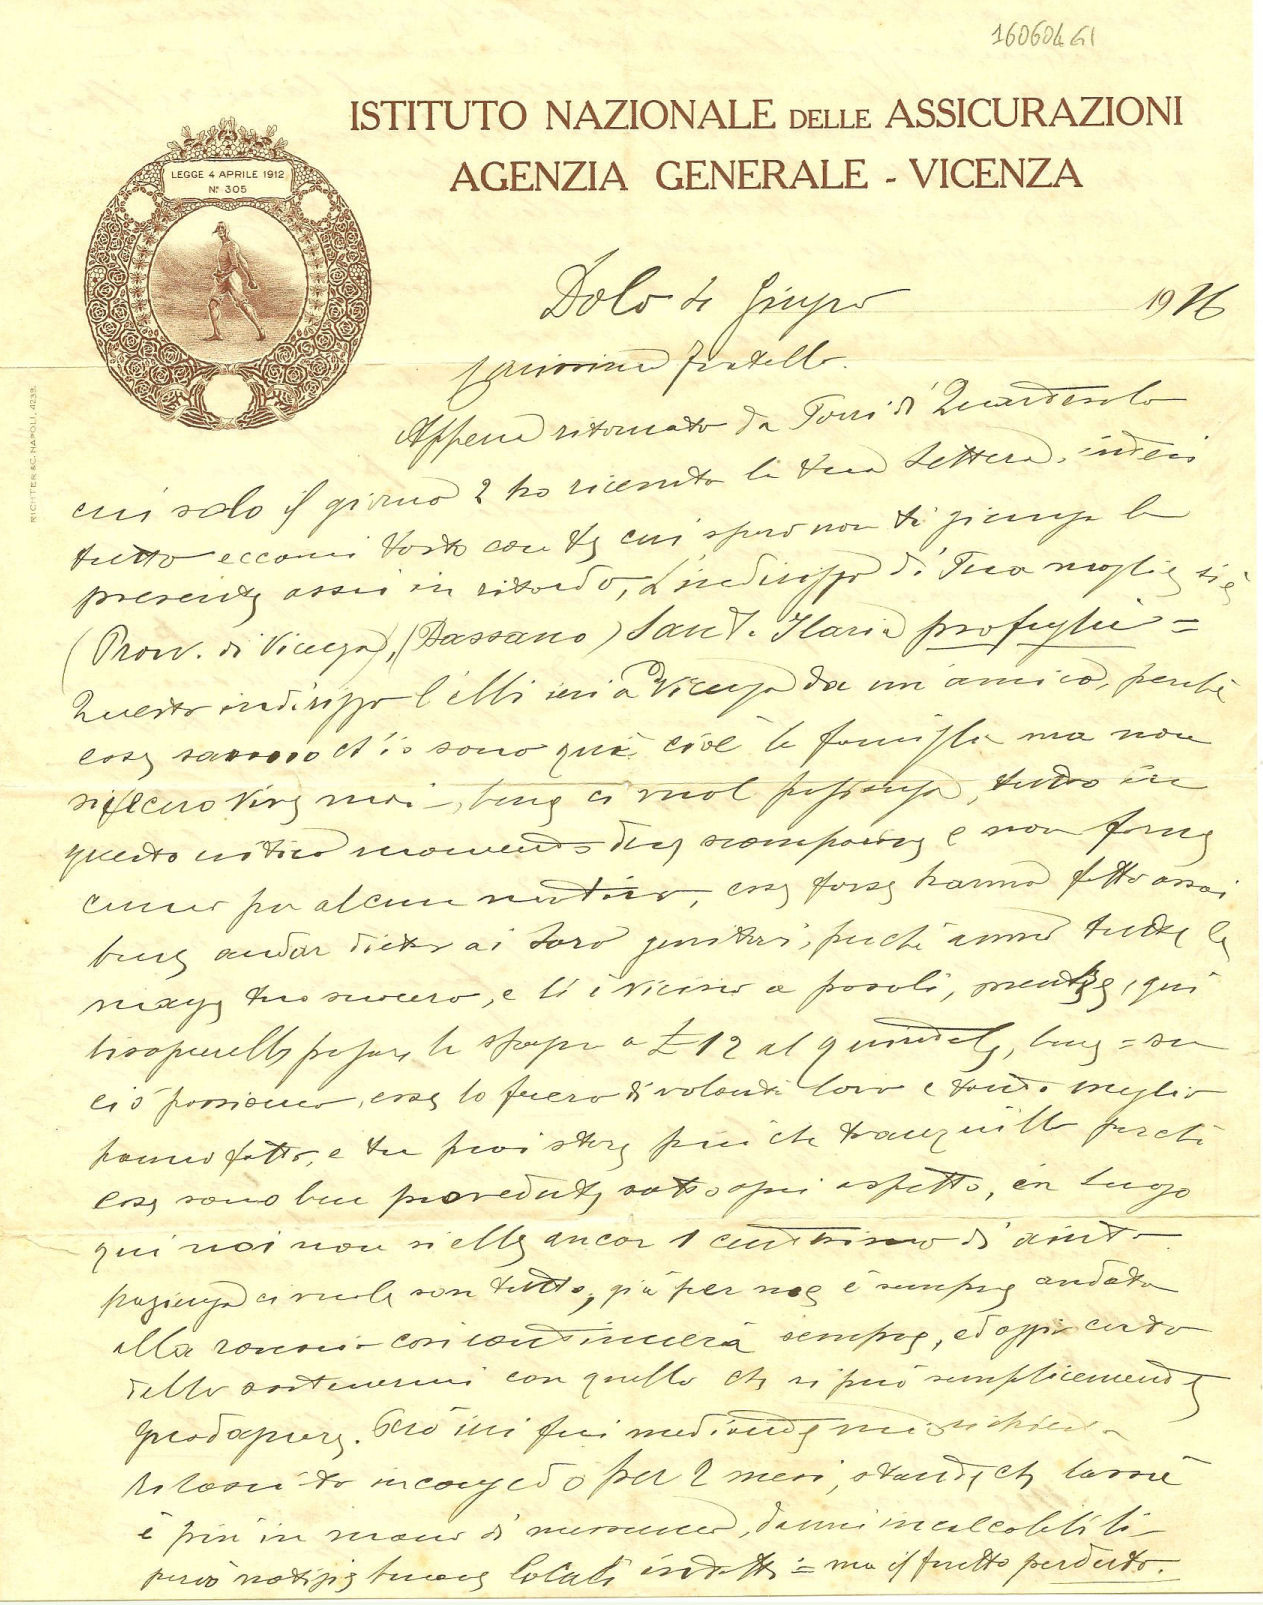 160604 GI
ISTITUTO NAZIONALE DELLE ASSICURAZIONI
AGENZIA GENERALE - VICENZA
LEGGE 4 APRILE 1912
N° 305
RICHTER & C. NAPOLI, 4239.
Dolo 4 Giugno 1916
Carissimo fratello.
Appena ritornato da Torri di Quartesolo
cui solo il giorno 2 ho ricevuto la tua lettera, intesi
tutto eccomi tosto con te cui spero non ti giunga la
presente assai in ritardo, L'indirizzo di Tua moglie si è
(Prov. di Vicenza), (Bassano) Sant. Ilaria profughi =
Questo indirizzo l'ebbi ieri a Vicenza da un amico, perchè
esse ch'io sono quì cioè la famiglia ma non
si fecero vive mai, bene ci vuol pazienza, tutto in
questo critico momento deve scomparire e non farne
per alcun motivo, esse forse hanno fatto assai
bene andar dietro ai loro genitori, perchè hanno tutte le
tuo suocero, e lì è vicino a , mentre, qui
pagare la a £ 12 al quintale, bene = se
ciò possono, esse lo fecero di volontà loro e tanto meglio
hanno fatto, e tu puoi stare più che tranquillo perchè
esse sono ben provedute sotto ogni aspetto, in luogo
qui noi non si ebbe ancor 1 centesimo di aiuto
pazienza ci vuole con tutto, già per noi è sempre andata
alla così continuerà sempre, ed oggi
con quello che si può semplicemente
Però ivi fui mediante mia richiesta
in congedo per 2 mesi, stante che
è più in mano di nessuno, danni incalcolabili
però notizie buone = ma il frutto perduto.